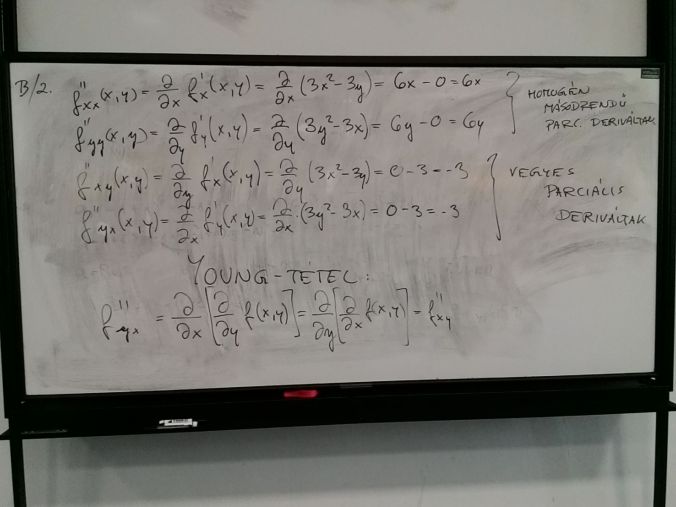 B/2. f''xx(x,y) = ∂/∂x f'x(x,y) = ∂/∂x (3x²-3y) = 6x - 0 = 6x
f''yy(x,y) = ∂/∂y f'y(x,y) = ∂/∂y (3y²-3x) = 6y - 0 = 6y
HOMOGÉN
MÁSODRENDŰ
PARC. DERIVÁLTAK
f''xy(x,y) = ∂/∂y f'x(x,y) = ∂/∂y (3x²-3y) = 0 - 3 = -3
f''yx(x,y) = ∂/∂x f'y(x,y) = ∂/∂x (3y²-3x) = 0 - 3 = -3
VEGYES
PARCIÁLIS
DERIVÁLTAK
YOUNG-TÉTEL:
f''yx = ∂/∂x [∂/∂y f(x,y)] = ∂/∂y [∂/∂x f(x,y)] = f''xy